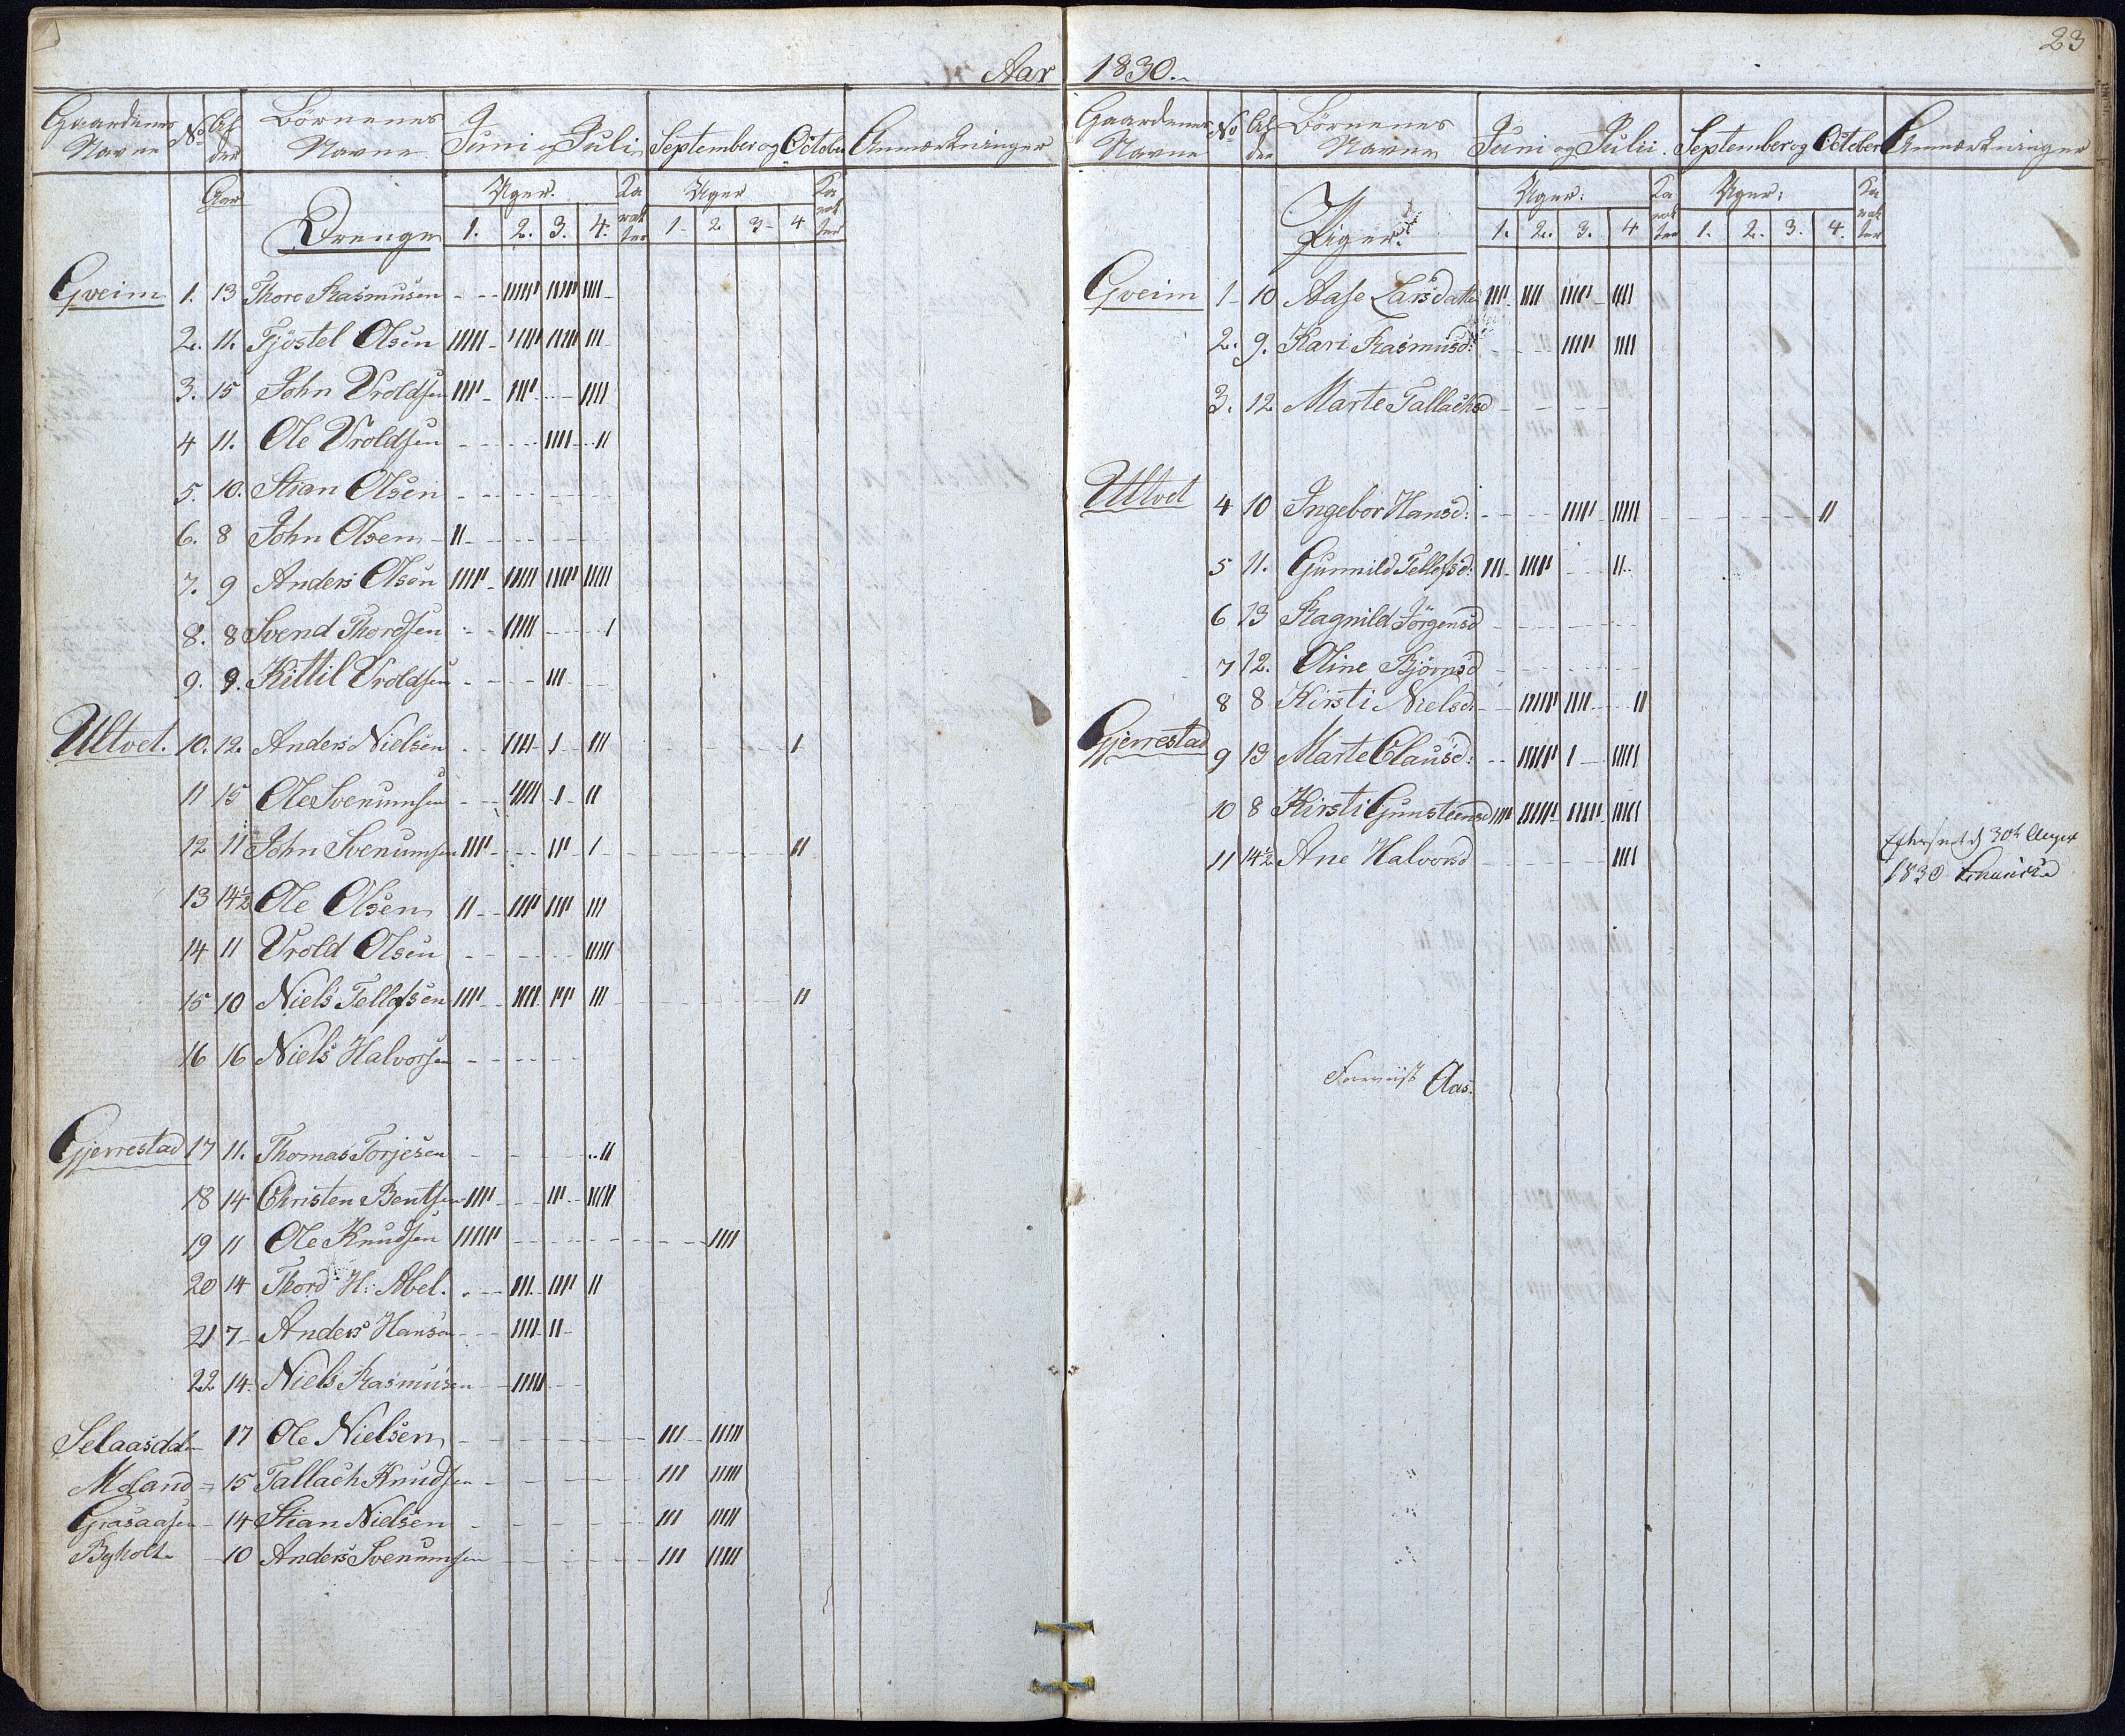 23
Aar 1830.
Gaardenes Navne No Alder Börnenes Navne Juni og Juli September og October Anmærkninger
Aar Drenge Uger. Karakter Uger Karakter
1. 2. 3. 4. 1 2 3 4
Gveim 1. 13 Thore Rasmusen - - - IIIII IIIII IIII -
2. 11. Tjöstel Olsen IIIII - IIIII IIIII III -
3. 15 John Vroldsen IIII - IIII - - - IIII
4 11. Ole Vroldsen - - - - IIII - - II
5. 10. Stian Olsen - - - - - -
6. 8 John Olsen - II - - - - -
7. 9 Anders Olsen IIIII - IIIII IIIII IIIII
8. 8 Svend Thordsen - - IIIII - - - - I
9. 9. Kittil Vroldsen - - - - III - -
Ultvet. 10. 12. Anders Nielsen - - IIII - I - III - - - - I
11 15 Ole Svenumsen - - IIIII - I - II
12 11 John Svenumsen IIII - - - III - I - - - - - II
13 14½ Ole Olsen II - - IIII IIII III
14 11 Vrold Olsen - - - - - IIIII
15 10 Niels Tellefsen IIII - - IIII III III - - - - II
16 16 Niels Halvorsen - - - - -
Gjerrestad 17 11. Thomas Torjesen - - - - - II
18 14 Christen Bentsen IIII - - - III - IIIII
19 11 Ole Knudsen IIIIII - - - - - - - IIII
20 14 Thord H: Abel. - - III - IIII II
21 7 - Anders Hansen - - - IIII - II -
22 14. Niels Rasmusen - - IIIII - -
Selaasdal - 17 Ole Nielsen - - - - - - III - IIIII
Moland = 15 Tallach Knudsen - - - - - III IIIII
Graasaasen - 14 Stian Nielsen - - - - - III IIIII
Byholt - 10 Anders Svenumsen - - - - - III IIIII
Gaardenes Navne No Alder Börnenes Navne Juni og Julii. September og October Anmærkninger
Piger. Uger: Karakter Uger: Karakter
1. 2. 3. 4 1. 2. 3. 4.
Gveim 1 - 10 Aase Larsdatter IIII - IIII IIIII - IIII
2. 9. Kari Rasmusd: - - - IIIII IIII
3. 12 Marte Tallachsd - - - -
Ultvet 4 10 Ingebor Hansd: - - - - IIIII IIIII - - - - II
5 11. Gunnild Tellefsd: III - IIIII - - II
6 13 Ragnild Jörgensd - - - - - -
7 12. Oline Björnsd - - - - - -
8 8 Kirsti Nielsd: - - IIIIII IIII - - - II
Gjerrestad 9 13 Marte Clausd: - - IIIIII I - IIIII
10 8 Kirsti Gunsteensd IIII IIIIII - IIIII - IIIII
11 14½ Ane Halvorsd - - - - - IIII
Efterseet d 30te August
1830
Aas.